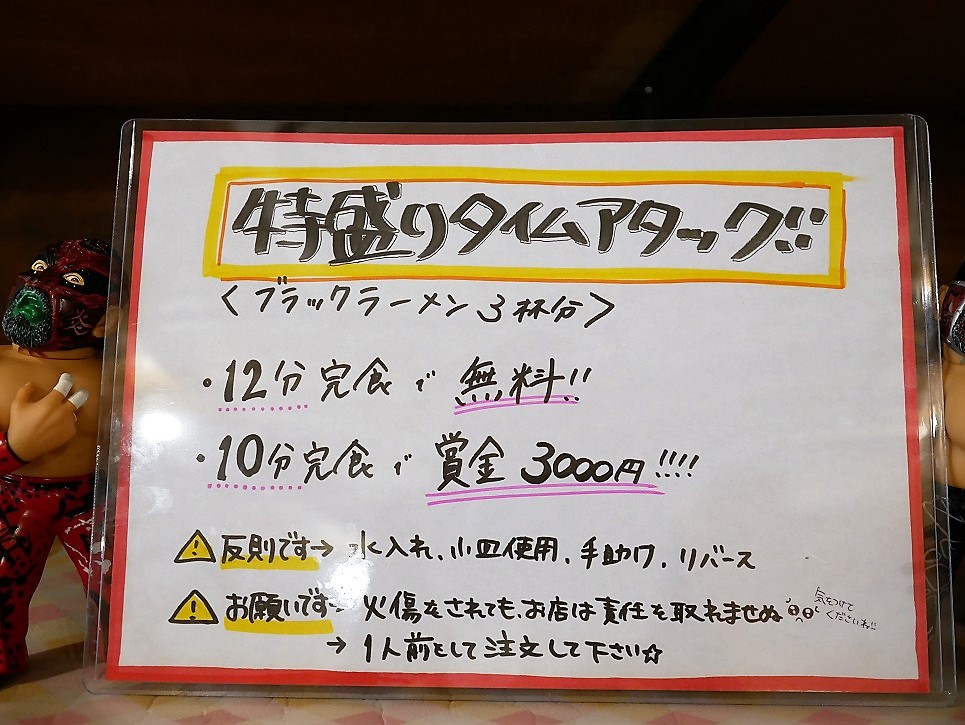 特盛りタイムアタック!!
<ブラックラーメン3杯分>
・12分完食で 無料!!
・10分完食で 賞金3000円!!!!
反則です→ 水入れ、小皿使用、手助け、リバース
お願いです→ 火傷をされても、お店は責任を取れませぬ
気をつけて
くださいね!!
→ 1人前として注文して下さい☆